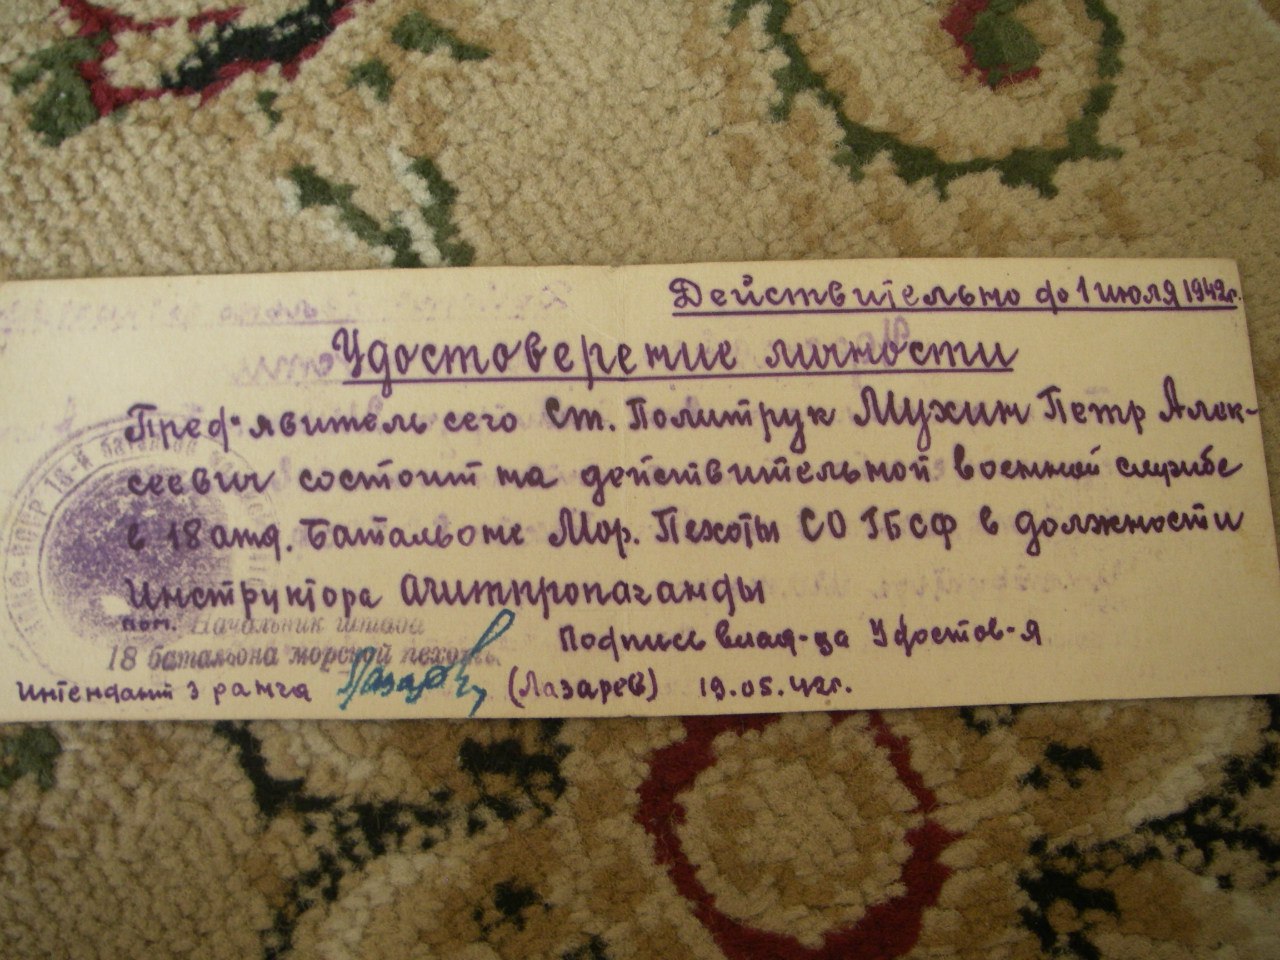 Действительно до 1 июля 1942г.
Удостоверение личности
Пред"явитель сего Ст. Политрук Мухин Петр Алек-
сеевич состоит на действительной военной службе
в 18 отд. Батальоне Мор. Пехоты СО ГБСФ в должности
Инструктора Агитпропаганды
пом. Начальник штаба
18 батальона морской пехоты
Подпись влад-ца Удостов-я
Интендант 3 ранга Лазарев (Лазарев) 19.05.42г.